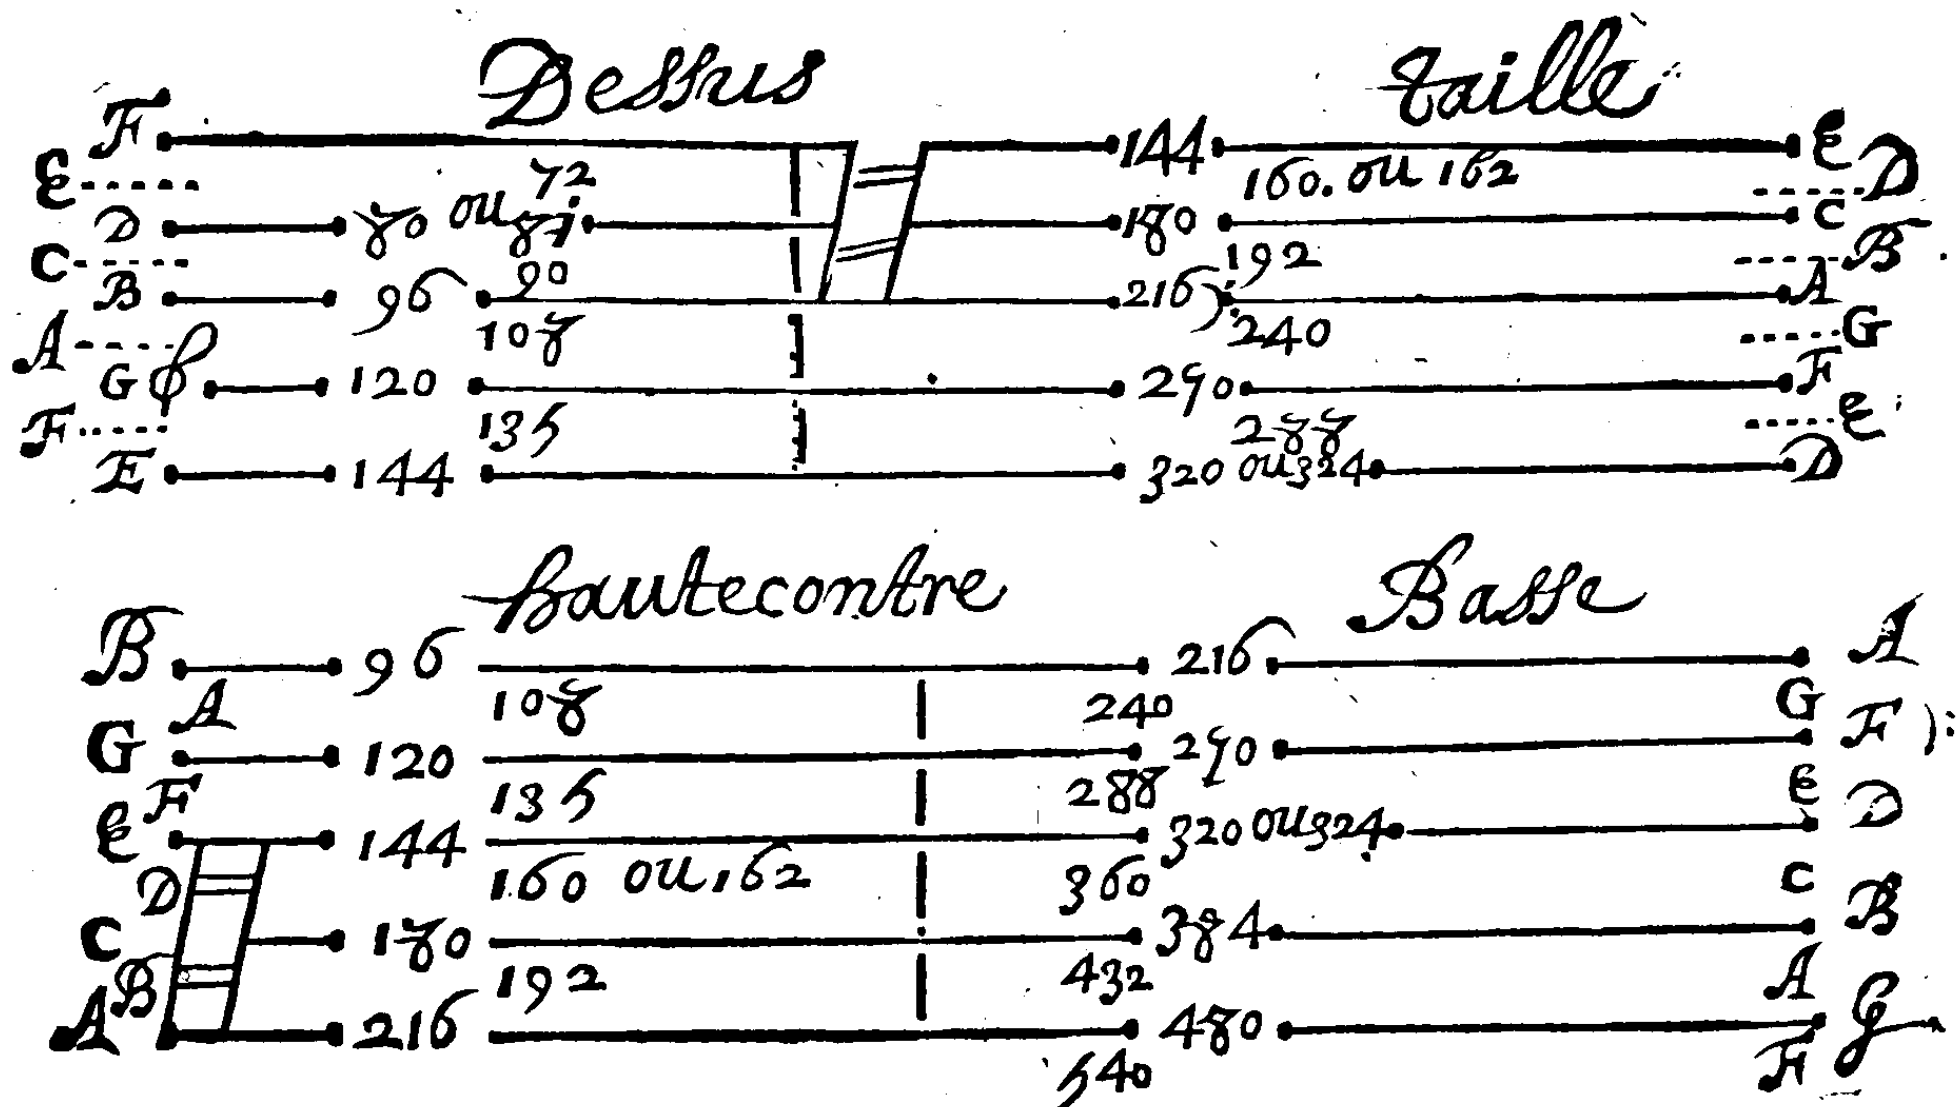 Dessus taille
F 144 E
E 72 160. ou 162 D
D 80 ou 81 180 C
C 90 192 B
B 96 216 A
A 108 240 G
G 120 270 F
F 135 288 E
E 144 320 ou 324 D
hautecontre Basse
B 96 216 A
A 108 240 G
G 120 270 F
F 135 288 E
E 144 320 ou 324 D
D 160 ou 162 360 C
C 180 384 B
B 192 432 A
A 216 480 G
540 F